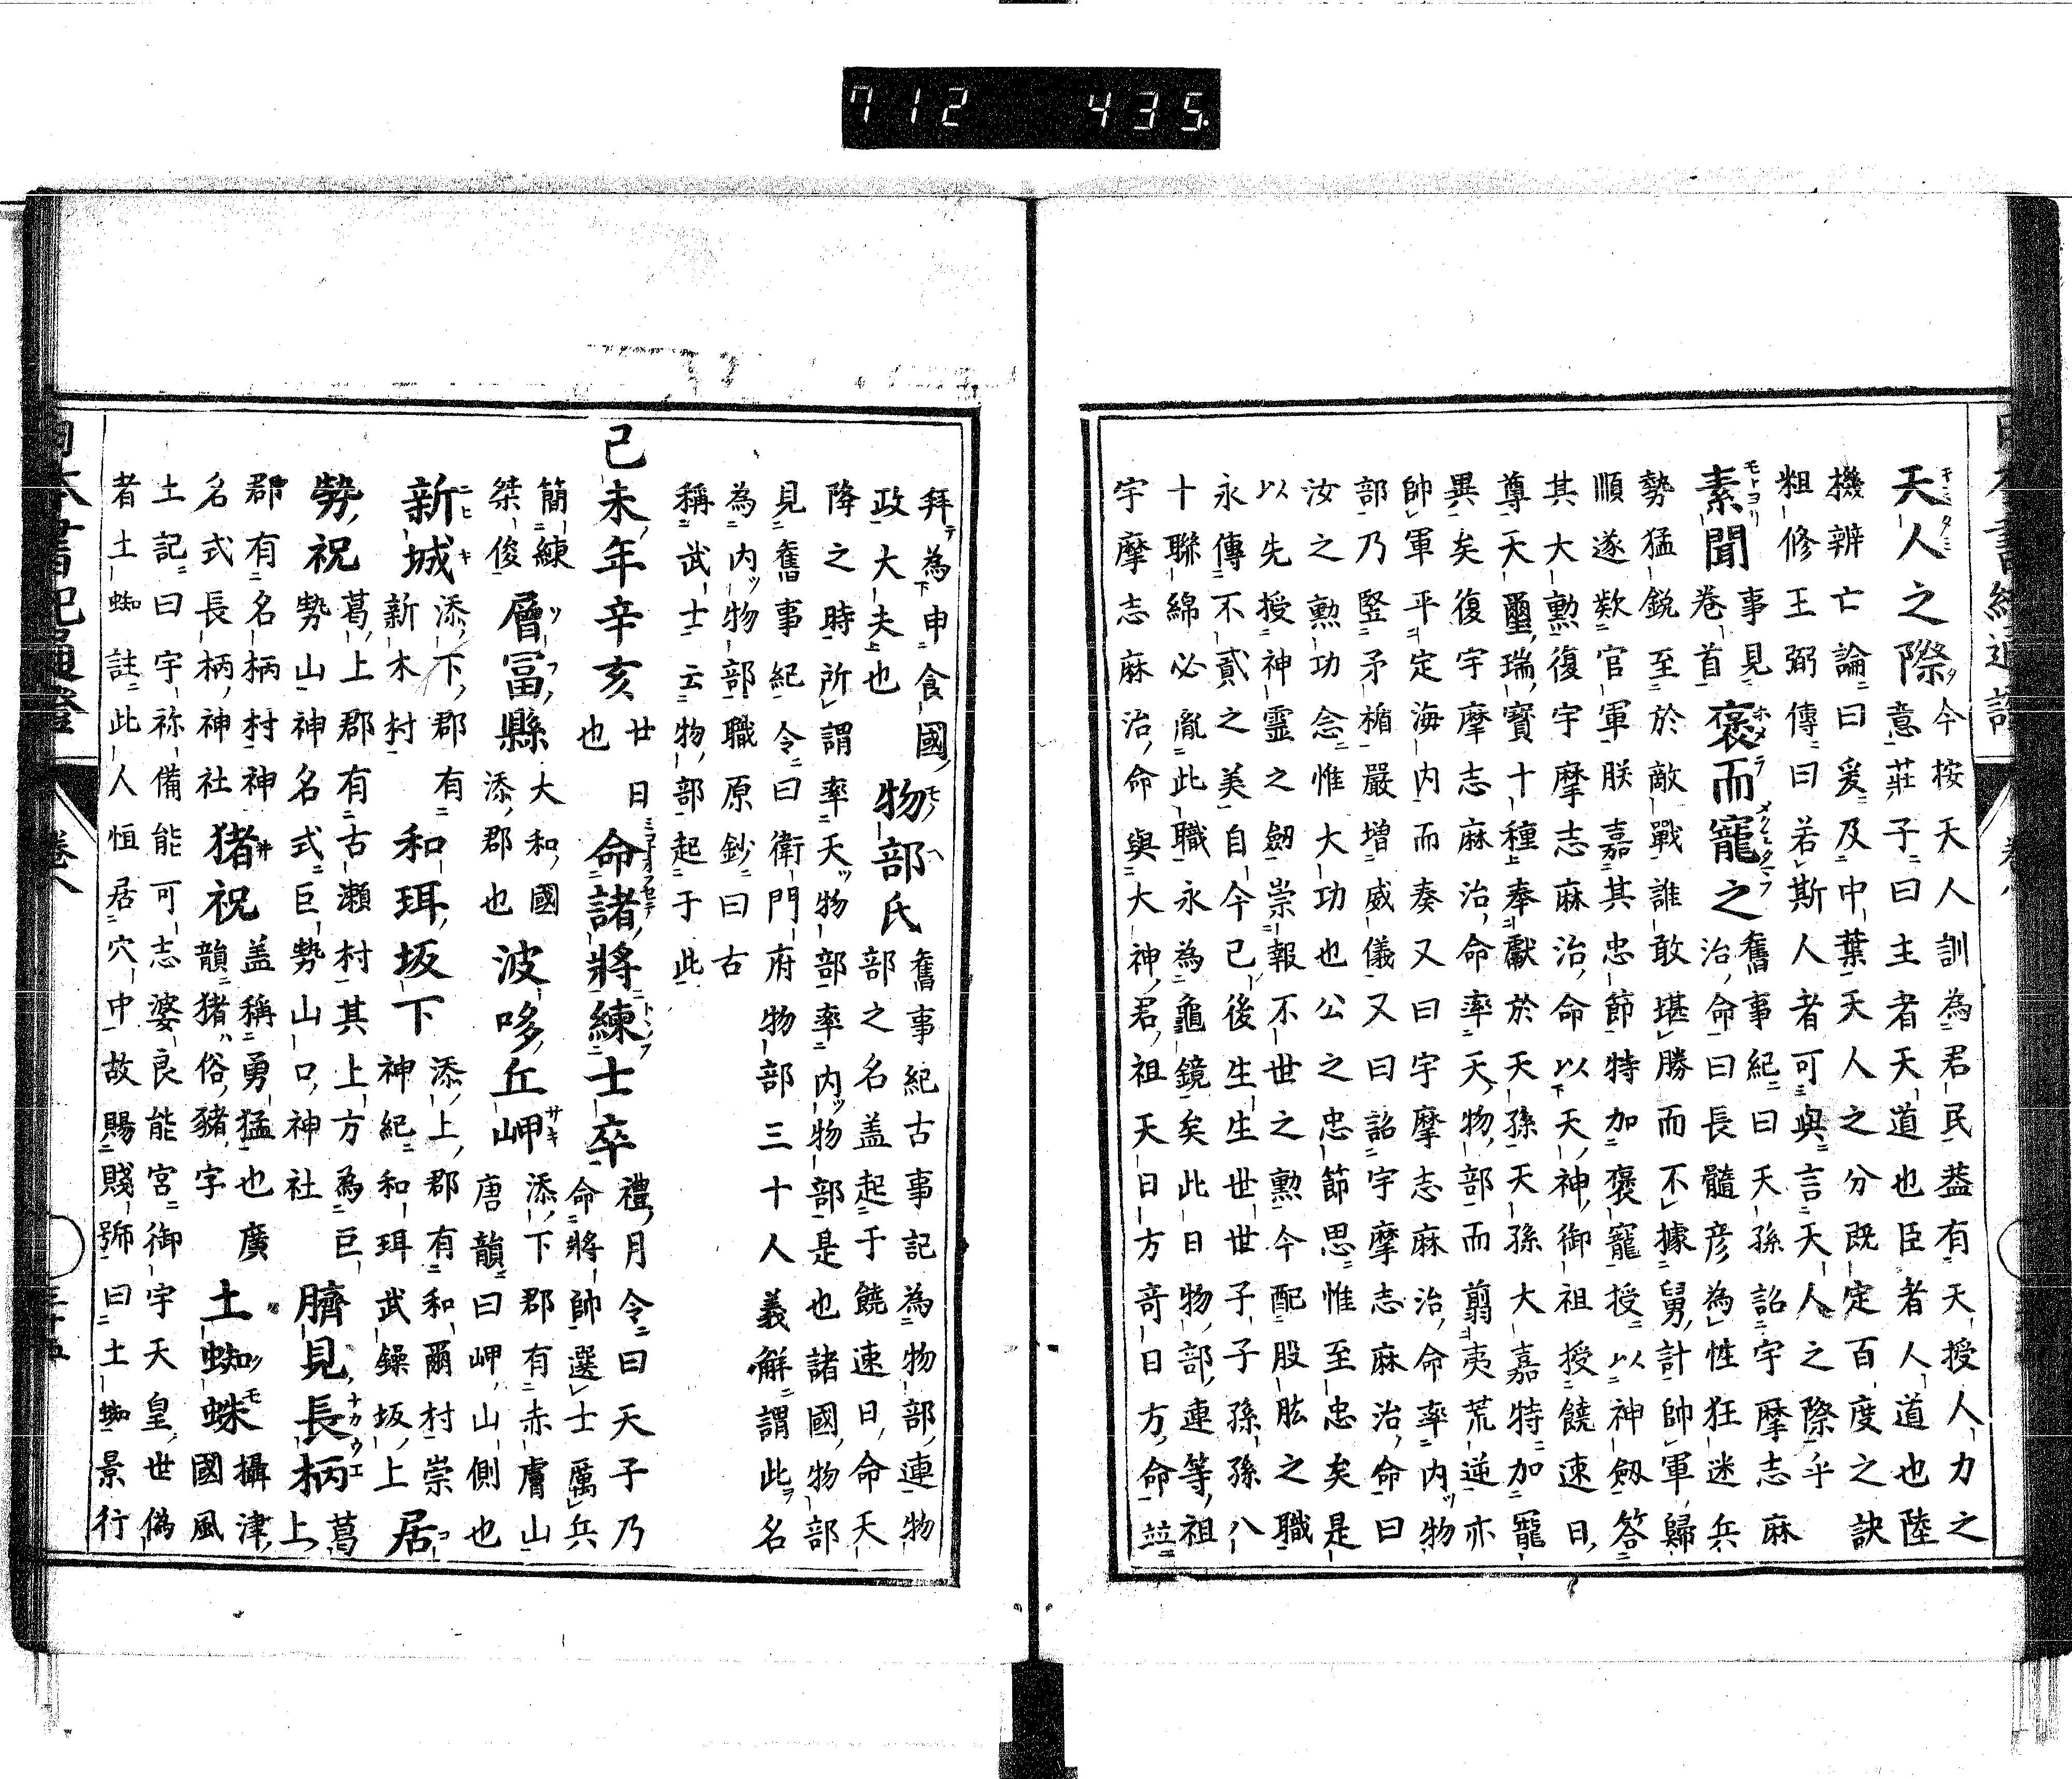 712 435.
天人之際 今按天人訓為君民蓋有天授人力之
意莊子曰主者天道也臣者人道也陸
機辨亡論曰爰及中葉天人之分既定百度之訣
粗修王弼傳曰若斯人者可與言天人之際乎
素聞 事見卷首 褒而寵之 舊事紀曰天孫詔宇摩志麻
治命曰長髓彦為性狂迷兵
勢猛鋭至於敵戰誰敢堪勝而不據舅計帥軍歸
順遂欵官軍朕嘉其忠節特加褒寵授以神劔答
其大勲復宇摩志麻治命以天神御祖授饒速日
尊天璽瑞寶十種奉獻於天孫天孫大嘉特加寵
異矣復宇摩志麻治命率天物部而翦夷荒逆亦
帥軍平定海内而奏又曰宇摩志麻治命率内物
部乃竪矛楯嚴増威儀又曰詔宇摩志麻治命曰
汝之勲功念惟大功也公之忠節思惟至忠矣是
以先授神靈之劔崇報不世之勲今配股肱之職
永傳不貳之美自今已後生生世世子子孫孫八
十聯綿必胤此職永為龜鏡矣此日物部連等祖
宇摩志麻治命與大神君祖天日方奇日方命並
拜為申食國
政大夫也 物部氏 舊事紀古事記為物部連物
部之名盖起于饒速日命天
降之時所謂率天物部率内物部是也諸國物部
見舊事紀令曰衛門府物部三十人義解謂此名
為内物部職原鈔曰古
稱武士云物部起于此
己未年辛亥 廿日也 命諸將練士卒 禮月令曰天子乃
命將帥選士厲兵
簡練
桀俊 層富縣 大和國
添郡也 波哆丘岬 添下郡有赤膚山
唐韻曰岬山側也
新城 添下郡有
新木村 和珥坂下 添上郡有和爾村崇
神紀和珥武鐰坂上 居
勢祝 葛上郡有古瀬村其上方為巨
勢山神名式巨勢山口神社 臍見長柄 葛上
郡有名柄村神
名式長柄神社 猪祝 盖稱勇猛也廣
韻猪俗豬字 土蜘蛛 攝津
國風
土記曰宇祢備能可志婆良能宮御宇天皇世偽
者土蜘註此人恒居穴中故賜賤號曰土蜘景行